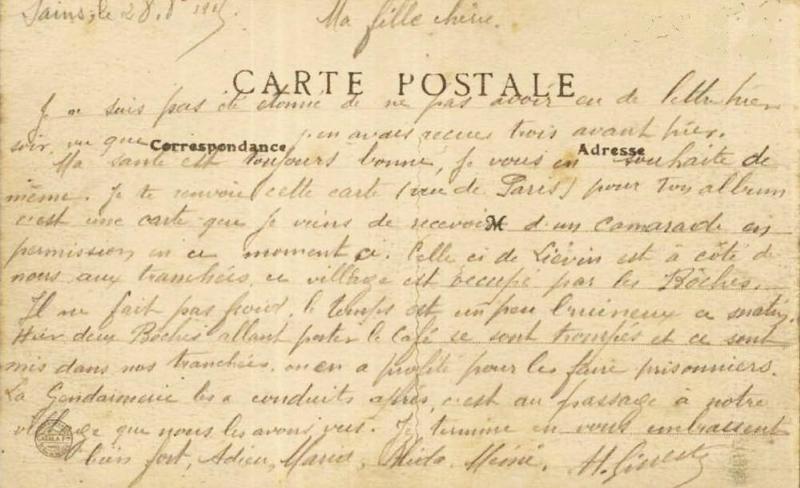 Sains, le 28. 8bre 1915
Ma fille chérie.
CARTE POSTALE
Je ne suis pas été étonné de ne pas avoir eu de lettre hier
soir, vu que j'en avais reçues trois avant hier.
Correspondance
Adresse
Ma santé est toujours bonne, je vous en souhaite de
même. Je te renvoie cette carte (vue de Paris) pour ton album
c'est une carte que je viens de recevoir d'un camarade en
permission en ce moment ci. Celle ci de Liévin est à côté de
nous aux tranchées, ce village est occupé par les Bôches.
Il ne fait pas froid, le temps est un peu bruineux ce matin.
Hier deux Boches allant porter le café se sont trompés et ce sont
mis dans nos tranchées. on en a profité pour les faire prisonniers.
La Gendarmerie les a conduits après, c'est au passage à notre
village que nous les avons vus. Je termine en vous embrassent
bien fort, Adieu, Marie, Mémé. H.